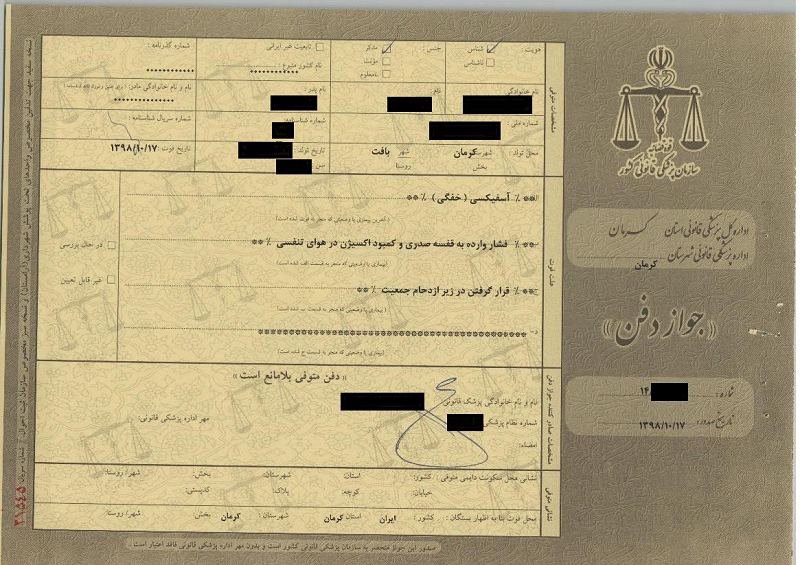 قوه قضائیه
سازمان پزشکی قانونی کشور
اداره کل پزشکی قانونی استان کرمان
اداره پزشکی قانونی شهرستان
کرمان
«جواز دفن»
شماره: ۱۴
تاریخ صدور: ۱۳۹۸/۱۰/۱۷
مشخصات متوفی
هویت: شناس ناشناس
جنس: مذکر مؤنث نامعلوم
تابعیت غیر ایرانی
نام کشور متبوع:
شماره گذرنامه:
نام خانوادگی:
نام:
نام پدر:
نام و نام خانوادگی مادر:
شماره ملی:
شماره شناسنامه:
شماره سریال شناسنامه:
محل تولد: شهرستان کرمان شهر بافت
بخش روستا
تاریخ تولد:
سن
تاریخ فوت: ۱۳۹۸/۱۰/۱۷
علت فوت
**٪ آسفیکسی (خفگی) ٪**
(آخرین بیماری یا وضعیتی که منجر به فوت شده است)
**٪ فشار وارده به قفسه صدری و کمبود اکسیژن در هوای تنفسی ٪**
(بیماری یا وضعیتی که منجر به قسمت الف شده است)
**٪ قرار گرفتن در زیر ازدحام جمعیت ٪**
(بیماری یا وضعیتی که منجر به قسمت ب شده است)
(بیماری یا وضعیتی که منجر به قسمت ج شده است)
در حال بررسی
غیر قابل تعیین
مشخصات صادر کننده جواز دفن
«دفن متوفی بلامانع است»
نام و نام خانوادگی پزشک قانونی:
شماره نظام پزشکی:
امضاء:
مهر اداره پزشکی قانونی:
نشانی متوفی
نشانی محل سکونت دایمی متوفی: کشور: استان: شهرستان: بخش: شهر/روستا:
خیابان: کوچه: پلاک: کدپستی:
محل فوت بنا به اظهار بستگان: کشور: ایران استان کرمان شهرستان: کرمان بخش: شهر/روستا:
صدور این جواز منحصر به سازمان پزشکی قانونی کشور است و بدون مهر اداره پزشکی قانونی فاقد اعتبار است.
شماره سریال
۳۱۵۴۵